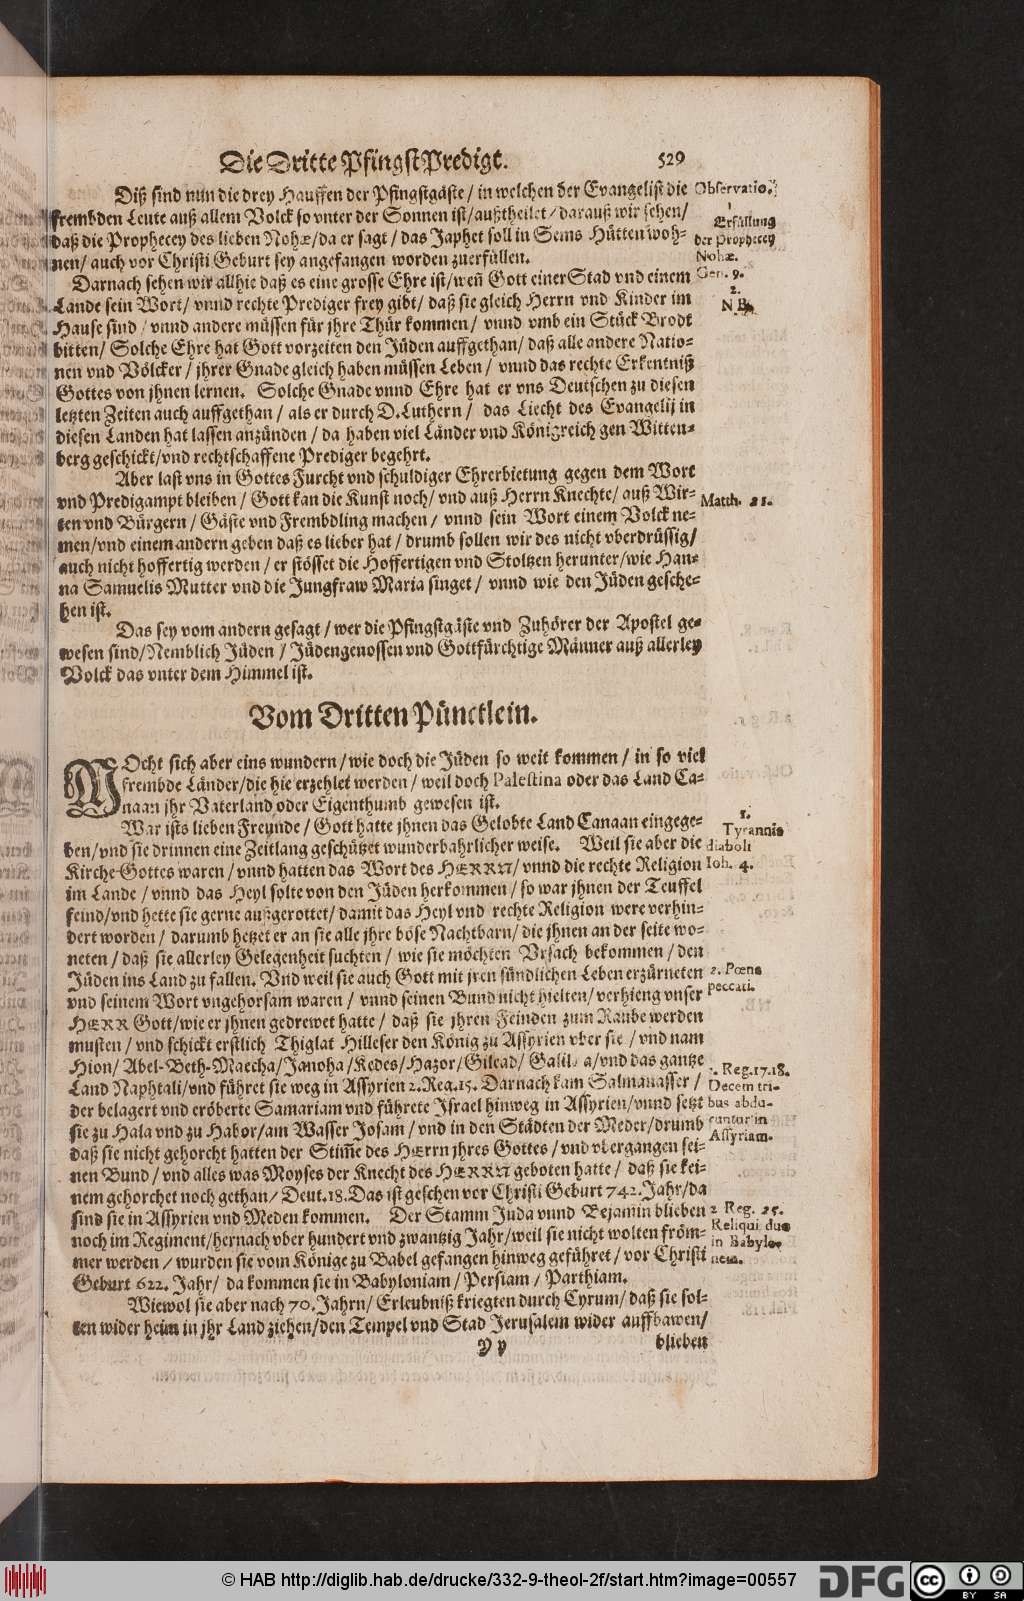 Die Dritte PfingstPredigt. 529
Diß sind nun die drey Hauffen der Pfingstgäste / in welchen der Evangelist die
frembden Leute auß allem Volck so vnter der Sonnen ist / außtheilet / darauß wir sehen /
daß die Prophecey des lieben Nohæ / da er sagt / das Japhet soll in Sems Hütten woh-
nen / auch vor Christi Geburt sey angefangen worden zuerfüllen.
Observatio.
1
Erfüllung
der Prophecey
Nohæ.
Gen. 9.
Darnach sehen wir allhie daß es eine grosse Ehre ist / weñ Gott einer Stad vnd einem
Lande sein Wort / vnnd rechte Prediger frey gibt / daß sie gleich Herrn vnd Kinder im
Hause sind / vnnd andere müssen für jhre Thür kommen / vnnd vmb ein Stück Brodt
bitten / Solche Ehre hat Gott vorzeiten den Jüden auffgethan / daß alle andere Natio-
nen vnd Völcker / jhrer Gnade gleich haben müssen Leben / vnnd das rechte Erkentniß
Gottes von jhnen lernen. Solche Gnade vnnd Ehre hat er vns Deutschen zu diesen
letzten Zeiten auch auffgethan / als er durch D. Luthern / das Liecht des Evangelij in
diesen Landen hat lassen anzünden / da haben viel Länder vnd Königreich gen Witten-
berg geschickt / vnd rechtschaffene Prediger begehrt.
2.
NB.
Aber last vns in Gottes Furcht vnd schuldiger Ehrerbietung gegen dem Wort
vnd Predigampt bleiben / Gott kan die Kunst noch / vnd auß Herrn Knechte / auß Wir-
ten vnd Bürgern / Gäste vnd Frembdling machen / vnnd sein Wort einem Volck ne-
men / vnd einem andern geben daß es lieber hat / drumb sollen wir des nicht vberdrüssig /
auch nicht hoffertig werden / er stösset die Hoffertigen vnd Stoltzen herunter / wie Han-
na Samuelis Mutter vnd die Jungfraw Maria singet / vnnd wie den Jüden gesche-
hen ist.
Matth. 21.
Das sey vom andern gesagt / wer die Pfingstgäste vnd Zuhörer der Apostel ge-
wesen sind / Nemblich Jüden / Jüdengenossen vnd Gottfürchtige Männer auß allerley
Volck das vnter dem Himmel ist.
Vom Dritten Pünctlein.
MOcht sich aber eins wundern / wie doch die Jüden so weit kommen / in so viel
frembde Länder / die hie erzehlet werden / weil doch Palestina oder das Land Ca-
naan jhr Vaterland oder Eigenthumb gewesen ist.
War ists lieben Freunde / Gott hatte jhnen das Gelobte Land Canaan eingege-
ben / vnd sie drinnen eine Zeitlang geschützet wunderbahrlicher weise. Weil sie aber die
Kirche Gottes waren / vnnd hatten das Wort des HERRN / vnnd die rechte Religion
im Lande / vnnd das Heyl solte von den Jüden herkommen / so war jhnen der Teuffel
feind / vnd hette sie gerne außgerottet / damit das Heyl vnd rechte Religion were verhin-
dert worden / darumb hetzet er an sie alle jhre böse Nachtbarn / die jhnen an der seite wo-
neten / daß sie allerley Gelegenheit suchten / wie sie möchten Vrsach bekommen / den
Jüden ins Land zu fallen. Vnd weil sie auch Gott mit jren sündlichen Leben erzürneten
vnd seinem Wort vngehorsam waren / vnnd seinen Bund nicht hielten / verhieng vnser
HERR Gott / wie er jhnen gedrewet hatte / daß sie jhren Feinden zum Raube werden
musten / vnd schickt erstlich Thiglat Hilleser den König zu Assyrien vber sie / vnd nam
Hion / Abel-Beth-Maecha / Janoha / Kedes / Hazor / Gilead / Galilea / vnd das gantze
Land Naphtali / vnd führet sie weg in Assyrien 2. Reg. 15. Darnach kam Salmanasser /
der belagert vnd eröberte Samariam vnd führete Israel hinweg in Assyrien / vnnd setzt
sie zu Hala vnd zu Habor / am Wasser Josam / vnd in den Städten der Meder / drumb
daß sie nicht gehorcht hatten der Stim̃e des HErrn jhres Gottes / vnd vbergangen sei-
nen Bund / vnd alles was Moyses der Knecht des HERRN geboten hatte / daß sie kei-
nem gehorchet noch gethan / Deut. 18. Das ist geschen vor Christi Geburt 742. Jahr / da
sind sie in Assyrien vnd Meden kommen. Der Stamm Juda vnnd Bejamin blieben
noch im Regiment / hernach vber hundert vnd zwantzig Jahr / weil sie nicht wolten fröm-
mer werden / wurden sie vom Könige zu Babel gefangen hinweg geführet / vor Christi
Geburt 622. Jahr / da kommen sie in Babyloniam / Persiam / Parthiam.
1.
Tyrannis
diaboli
Ioh. 4.
2. Pœna
peccati.
2. Reg. 17. 18.
Decem tri-
bus abdu-
cuntur in
Assyriam.
2 Reg. 25.
Reliqui duo
in Babylo-
nem.
Wiewol sie aber nach 70. Jahrn / Erleubniß kriegten durch Cyrum / daß sie sol-
ten wider heim in jhr Land ziehen / den Tempel vnd Stad Jerusalem wider auffbawen /
Y y blieben
© HAB http://diglib.hab.de/drucke/332-9-theol-2f/start.htm?image=00557
DFG
cc BY SA